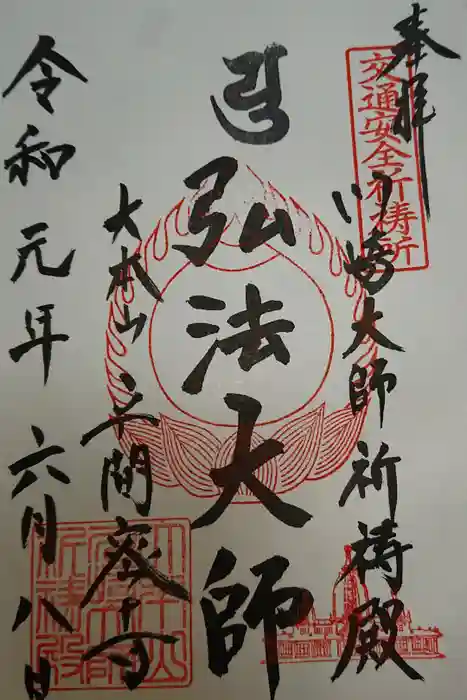 奉拝
交通安全祈祷所
川崎大師祈祷殿
弘法大師
大本山平間密寺
令和元年六月八日